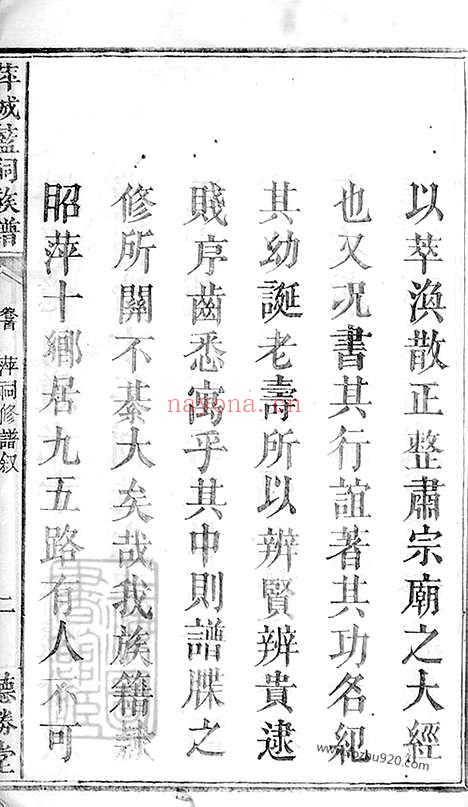 以萃渙散正整肅宗廟之大經
也又況書其行誼著其功名紀
其幼誕老壽所以辨賢辨貴逮
賤序齒悉寓乎其中則譜牒之
修所關不綦大矣哉我族籍隸
昭萍十鄉居九五路有人不可
萍城藍祠族譜
萍祠修譜叙
二
德勝堂
nayona.cn
www.bozhu920.com